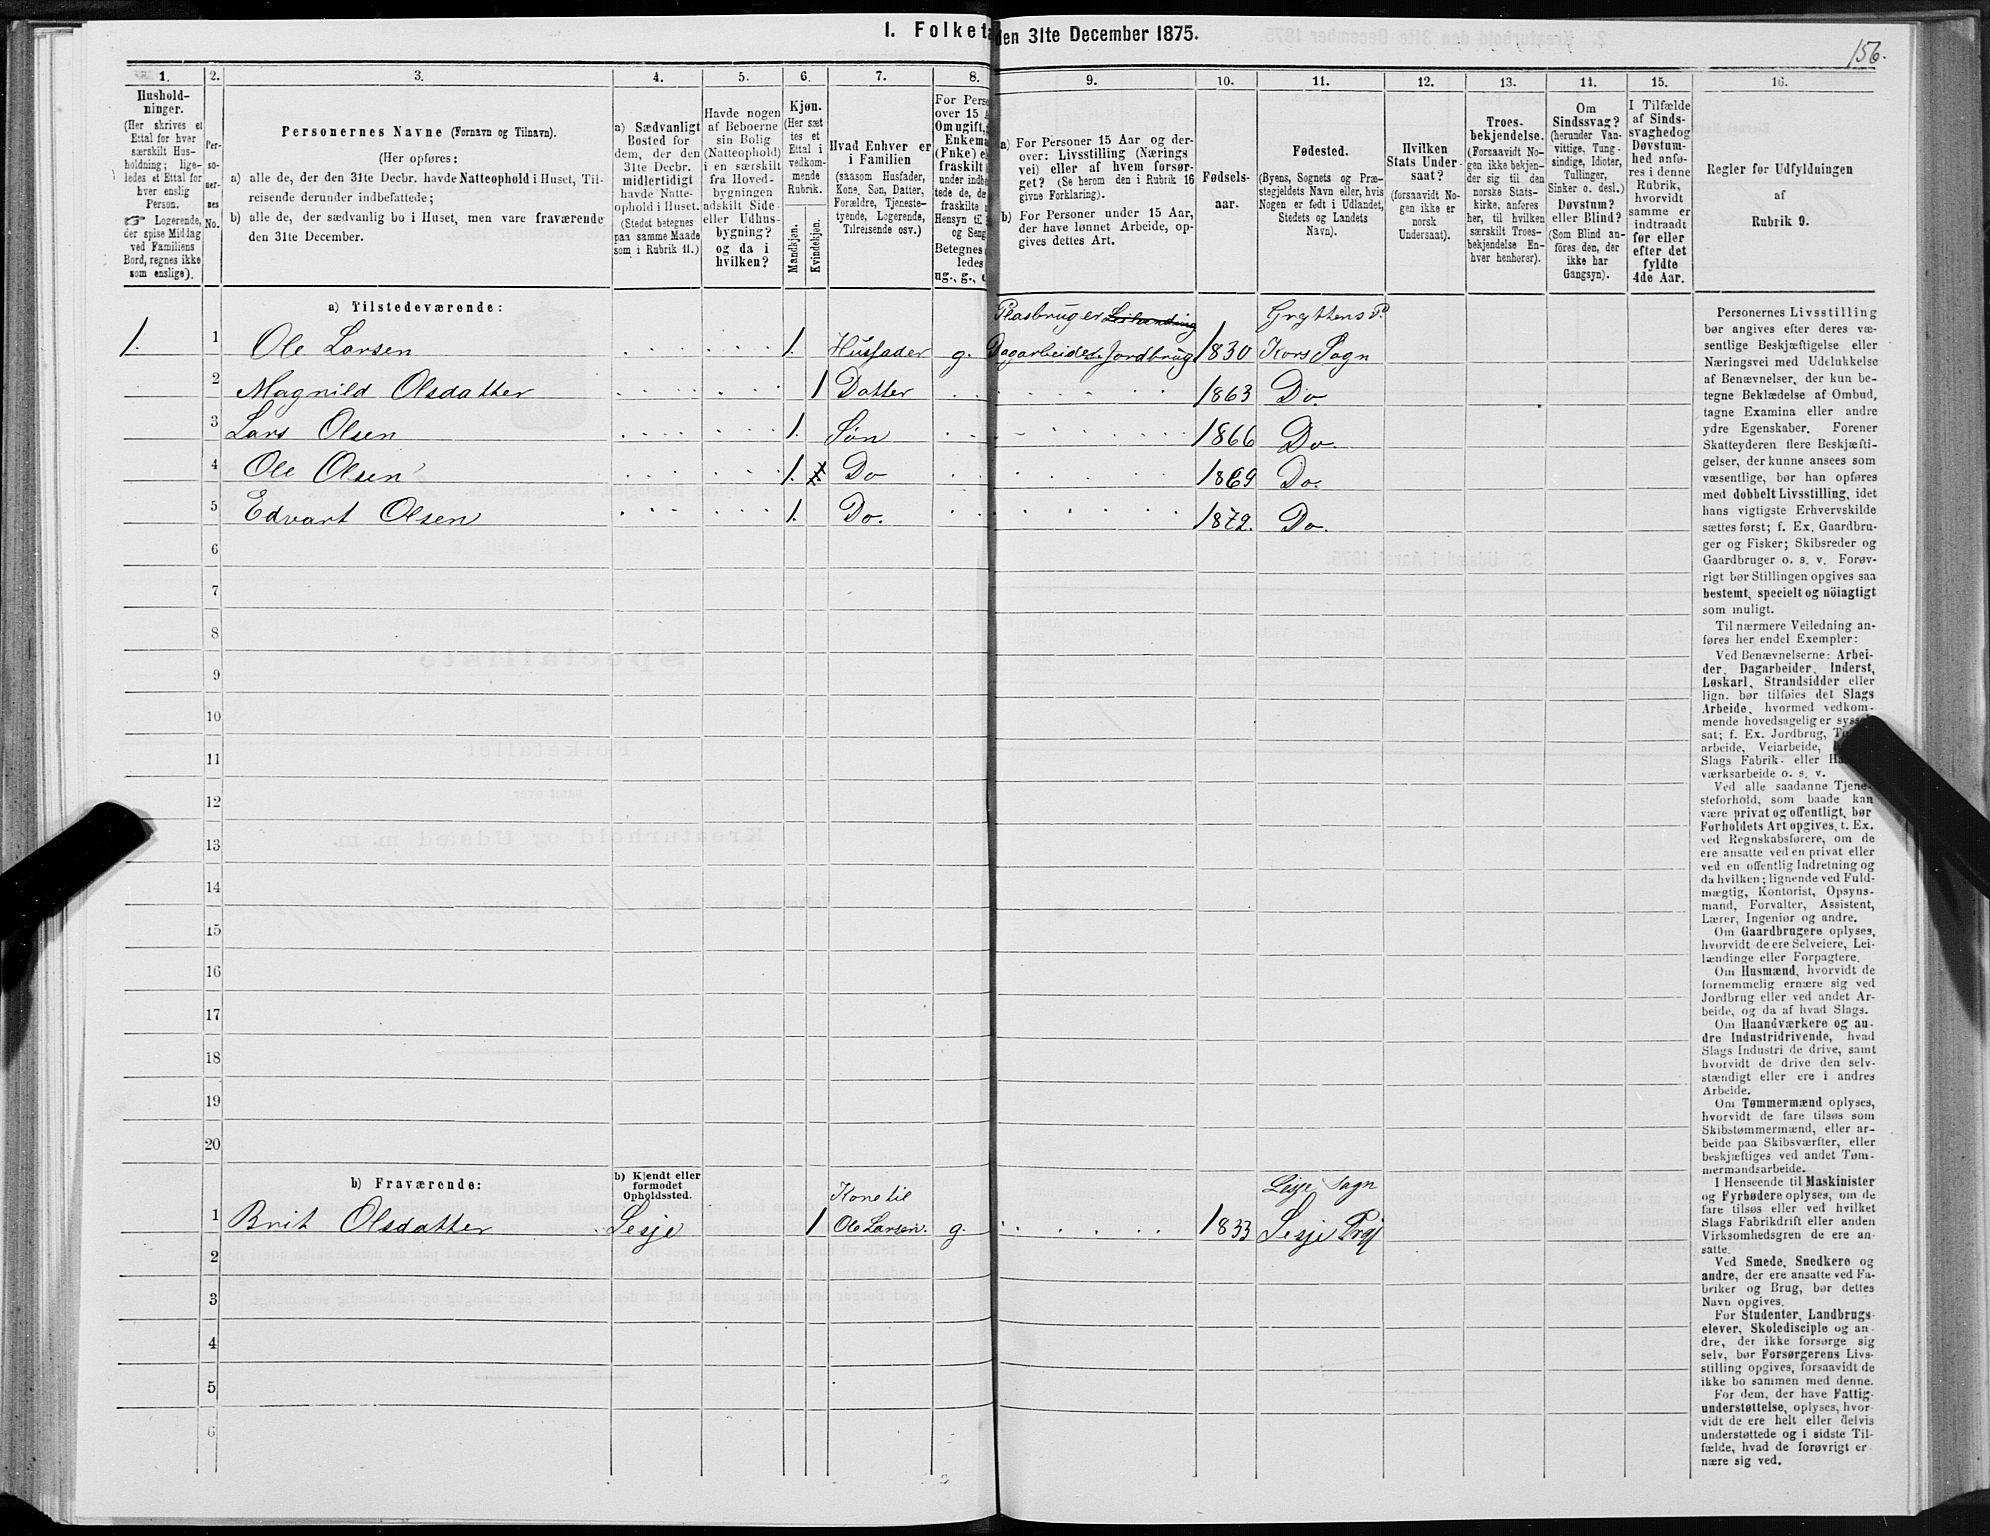 I. Folketa den 31te December 1875.
156.
1. 2. 3. 4. 5. 6. 7. 8. 9. 10. 11. 12. 13. 14. 15. 16.
Hushold-
ninger.
(Her skrives et
Ettal for hver
særskilt Hus-
holdning; lige-
ledes et Ettal for
hver enslig
Person.
☞ Logerende,
der spise Middag
ved Familiens
Bord, regnes ikke
som enslige).
Per-
so-
ner-
nes
No.
Personernes Navne (Fornavn og Tilnavn).
(Her opføres:
a) alle de, der den 31te Decbr. havde Natteophold i Huset, Til-
reisende derunder indbefattede;
b) alle de, der sædvanlig bo i Huset, men vare fraværende
den 31te December.
a) Sædvanligt
Bosted for
dem, der den
31te Decbr.
midlertidigt
havde Natte-
ophold i Huset.
(Stedet betegnes
paa samme Maade
som i Rubrik 11.)
Havde nogen
af Beboerne
sin Bolig
(Natteophold)
i en særskilt
fra Hoved-
bygningen
adskilt Side-
eller Udhus-
bygning?
og da i
hvilken?
Kjøn.
(Her sæt
tes et
Ettal i
vedkom-
mende
Rubrik.
Mandkjøn.
Kvindekjøn.
Hvad Enhver er
i Familien
(saasom Husfader,
Kone, Søn, Datter,
Forældre, Tjeneste-
tyende, Logerende,
Tilreisende osv.)
For Perso
over 15
Om ugift,
Enkema
(Enke) e
fraskilt
under indbe
tede de, de
fraskilte
Hensyn til
og Seng
Betegnes
ledes
ug., g., e
a) For Personer 15 Aar og der-
over: Livsstilling (Nærings
vei) eller af hvem forsør-
get? (Se herom den i Rubrik 16
givne Forklaring).
b) For Personer under 15 Aar,
der have lønnet Arbeide, op-
gives dettes Art.
Fødsels-
aar.
Fødested.
(Byens, Sognets og Præ-
stegjeldets Navn eller, hvis
Nogen er født i Udlandet,
Stedets og Landets
Navn).
Hvilken
Stats Under-
saat?
(forsaavidt No-
gen ikke er
norsk
Undersaat).
Troes-
bekjendelse.
(Forsaavidt No-
gen ikke bekjen-
der sig til den
norske Stats-
kirke, anføres
her, til hvilken
særskilt Troes-
bekjendelse En-
hver henhører).
Om
Sindssvag?
(herunder Van-
vittige, Tung-
sindige, Idioter,
Tullinger,
Sinker o. desl.)
Døvstum?
eller Blind?
(Som Blind an-
føres den, der
ikke har
Gangsyn).
I Tilfælde
af Sinds-
svaghed og
Døvstum-
hed anfø-
res i denne
Rubrik,
hvorvidt
samme er
indtraadt
før eller
efter det
fyldte
4de Aar.
Regler for Udfyldningen
af
Rubrik 9.
a) Tilstedeværende:
Pladsbruger Leilending Gryttens P.
1. 1 Ole Larsen 1. Husfader g. Dagarbeider Jordbrug 1830 Kors Sogn
2 Magnild Olsdatter 1 Datter 1863 Do.
3 Lars Olsen 1. Søn 1866 Do.
4 Ole Olsen 1. Do 1869 Do.
5 Edvart Olsen 1. Do. 1872. Do.
6
7
8
9
10
11
12
13
14
15
16
17
18
19
20
b) Fraværende:
b) Kjendt eller
formodet
Opholdssted.
Kone til Lesje Sogn
1 Brit Olsdatter Lesje 1 Ole Larsen. g 1833 Lesje Prgj
2
3
4
5
6
Personernes Livsstilling
bør angives efter deres væ-
sentlige Beskjæftigelse eller
Næringsvei med Udelukkelse
af Benævnelser, der kun be-
tegne Beklædelse af Ombud,
tagne Examina eller andre
ydre Egenskaber. Forener
Skatteyderen flere Beskjæfti-
gelser, der kunne ansees som
væsentlige, bør han opføres
med dobbelt Livsstilling, idet
hans vigtigste Erhvervskilde
sættes først; f. Ex. Gaardbru-
ger og Fisker; Skibsreder og
Gaardbruger o. s. v. Forøv-
rigt bør Stillingen opgives saa
bestemt, specielt og nöiagtigt
som muligt.
Til nærmere Veiledning an-
føres her endel Exempler:
Ved Benævnelserne: Arbei-
der, Dagarbeider, Inderst,
Løskarl, Strandsidder eller
lign. bør tilføies det Slags
Arbeide, hvormed vedkom-
mende hovedsagelig er syssel
sat; f. Ex. Jordbrug,
arbeide, Veiarbeide,
Slags Fabrik- eller
værksarbeide o. s. v.
Ved alle saadanne Tjene-
steforhold, som baade kan
være privat og offentligt, bør
Forholdets Art opgives, t. Ex.
ved Regnskabsførere, om de
ere ansatte ved en privat eller
ved en offentlig Indretning og
da hvilken; lignende ved Fuld-
mægtig, Kontorist, Opsyns-
mand, Forvalter, Assistent,
Lærer, Ingeniør og andre.
Om Gaardbrugere oplyses,
hvorvidt de ere Selveiere, Lei-
lændinge eller Forpagtere.
Om Husmænd, hvorvidt de
fornemmelig ernære sig ved
Jordbrug eller ved andet Ar-
beide, og da af hvad Slags.
Om Haandværkere og an-
dre Industridrivende, hvad
Slags Industri de drive, samt
hvorvidt de drive den selv-
stændigt eller ere i andres
Arbeide.
Om Tømmermænd oplyses,
hvorvidt de fare tilsøs som
Skibstømmermænd, eller ar-
beide paa Skibsværfter, eller
beskjæftiges ved andet Tøm-
mermandsarbeide.
I Henseende til Maskinister
og Fyrbødere oplyses, om de
fare tilsøs eller ved hvilket
Slags Fabrikdrift eller anden
Virksomhedsgren de ere an-
satte.
Ved Smede, Snedkere og
andre, der ere ansatte ved Fa-
briker og Brug, bør dettes
Navn opgives.
For Studenter, Landbrugs-
elever, Skoledisciple og an-
dre, der ikke forsørge sig
selv, bør Forsørgerens Livs-
stilling opgives, forsaavidt de
ikke bo sammen med denne.
For dem, der have Fattig-
understøttelse, oplyses, hvor-
vidt de ere helt eller delvis
understøttede og i sidste Til-
fælde, hvad de forøvrigt er-
nære sig ved.